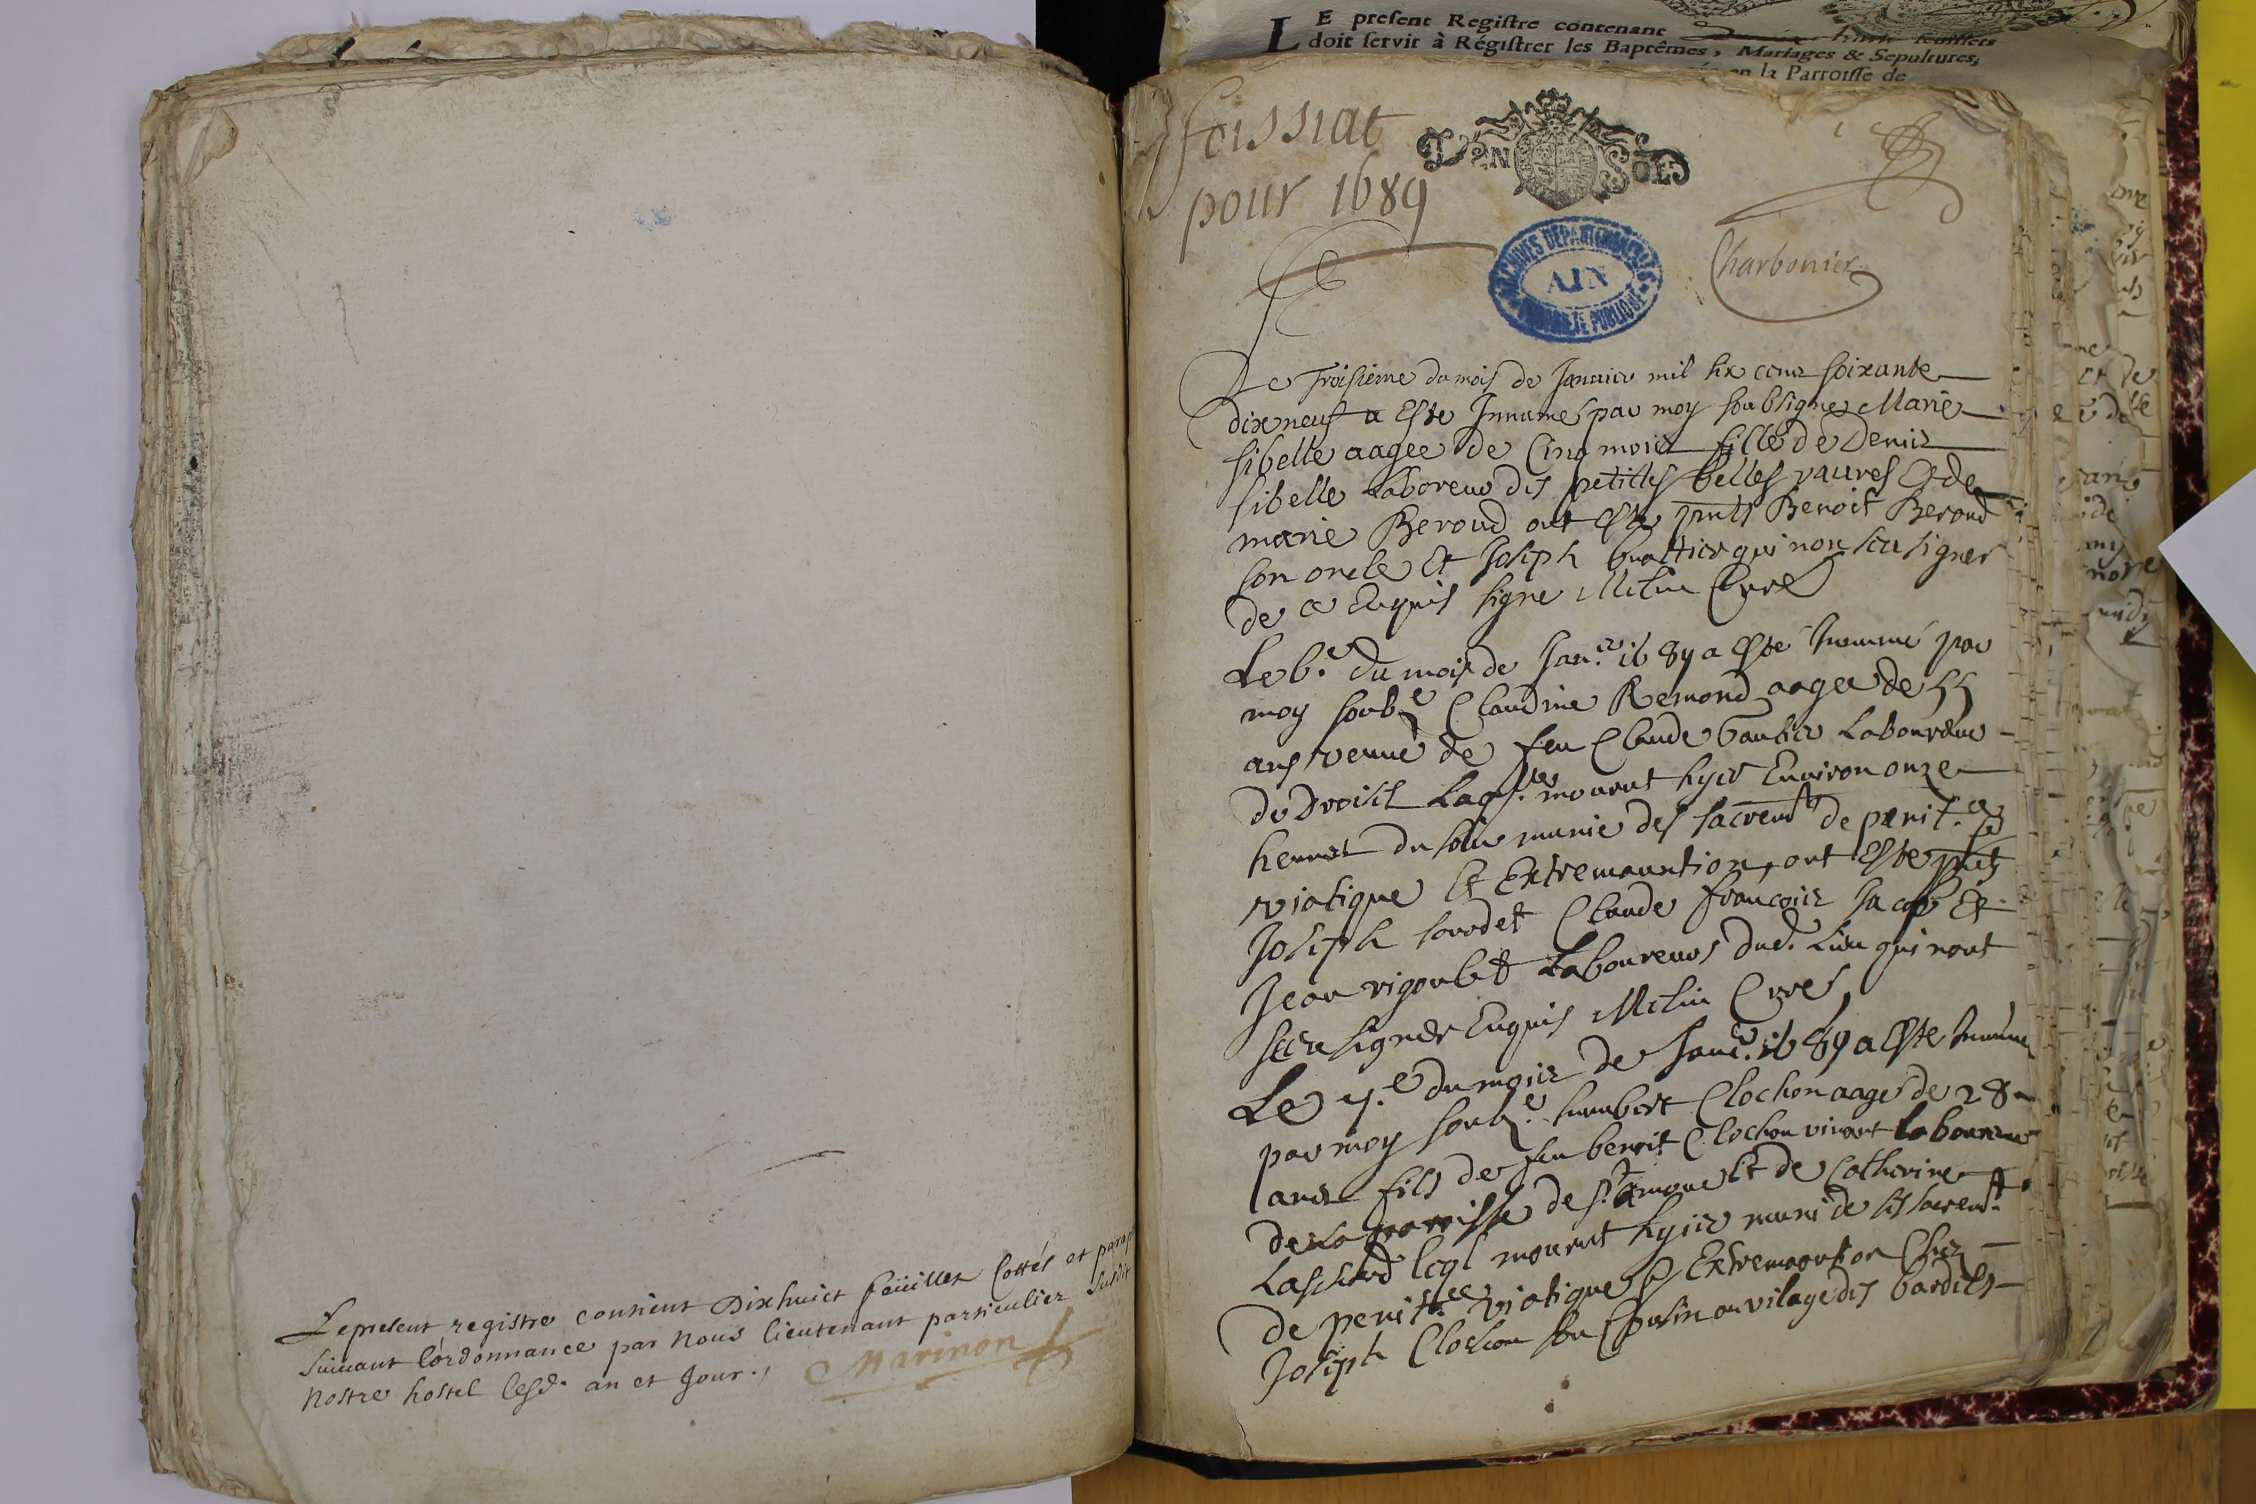 Le present registre contient Dixhuict feüilles Cottés et parap
suivant l'ordonnance par Nous lieutenant particulier susdit
Nostre hostel lesd. an et Jour.
Marinon
LE present Registre contenant feuillets
doit servir à Régistrer les Baptêmes, Mariages & Sepultures,
en la Parroisse de
foissiat
pour 1689
UN SOL
ARCHIVES DEPARTEMENTALES
AIN
PUBLIQUE
Charbonier
Le Troisieme du mois de Janvier mil six cens soixante
dix neuf a este Innumes par moy soubsigne Marie
sibelle aagee de Cinq mois fille de Denis
sibelle Laboreur des petittes belles vavres et de
marie Beroud ont este pnts Benoit Beroud
son oncle et Joseph qui non sceu signer
de ce Enquis signe Curé
Le 6.e du mois de Jan.er 1689 a esté Inumé par
moy soub.e Claudine Remond aagee de 55
ans veuve de feu Claude Laboureur
de Laq.le mourut hyer Environ onze
heures du soir munie des sacremts de penit.ce
viatique et Extremaunction, ont este pnts
Joseph Claude françois Jacop et
Jean Laboureurs dud. Lieu qui nont
sceu signer Enquis Curé
Le 7.e du mois de Janv.r 1689 a este Inumé
par moy soub.e humbert Clochon aage de 28
ans fils de feu benoit Clochon vivant laboureur
de la parroisse de s.t amour et de Catherine
leql mourut hyer muni de ses sacremt.
de penit.ce viatique & Extremaontion Chez
Joseph Clochon son Cousin au vilage des bardets